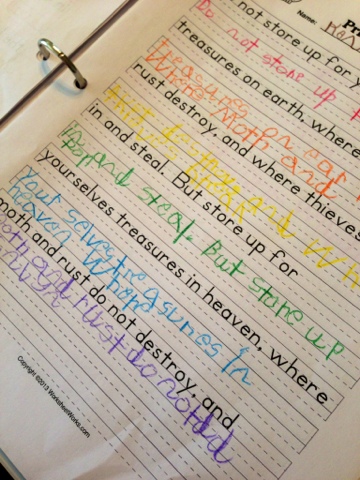 Name:
Pra
not store up for y
Do not store up f
treasures on earth, where
treasures on ear
Where moth and
rust destroy, and where thieves
rust destroy and wh
in and steal. But store up for
in and steal. But store up
yourselves treasures in heaven, where
your selves treasures in
heaven where
moth and rust do not destroy, and
moth and rust do not d
Copyright ©2013 WorksheetWorks.com